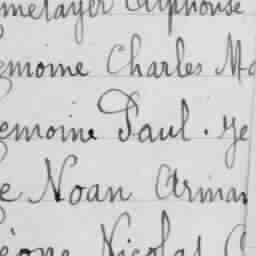 metayer Alphonse
emoine Charles Ma
emoine Paul. Ye
e Noan Arman
éone Nicolas